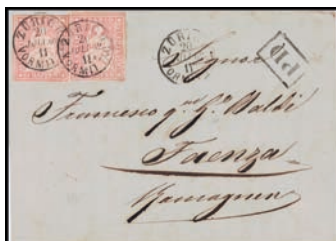 ZÜRICH
20
11
VORMIT
ZÜRICH
20
11
VORMIT
ZÜRICH
20
11
VOR
PD
Signor
Francesco q.m G. Baldi
Faenza
Romagna